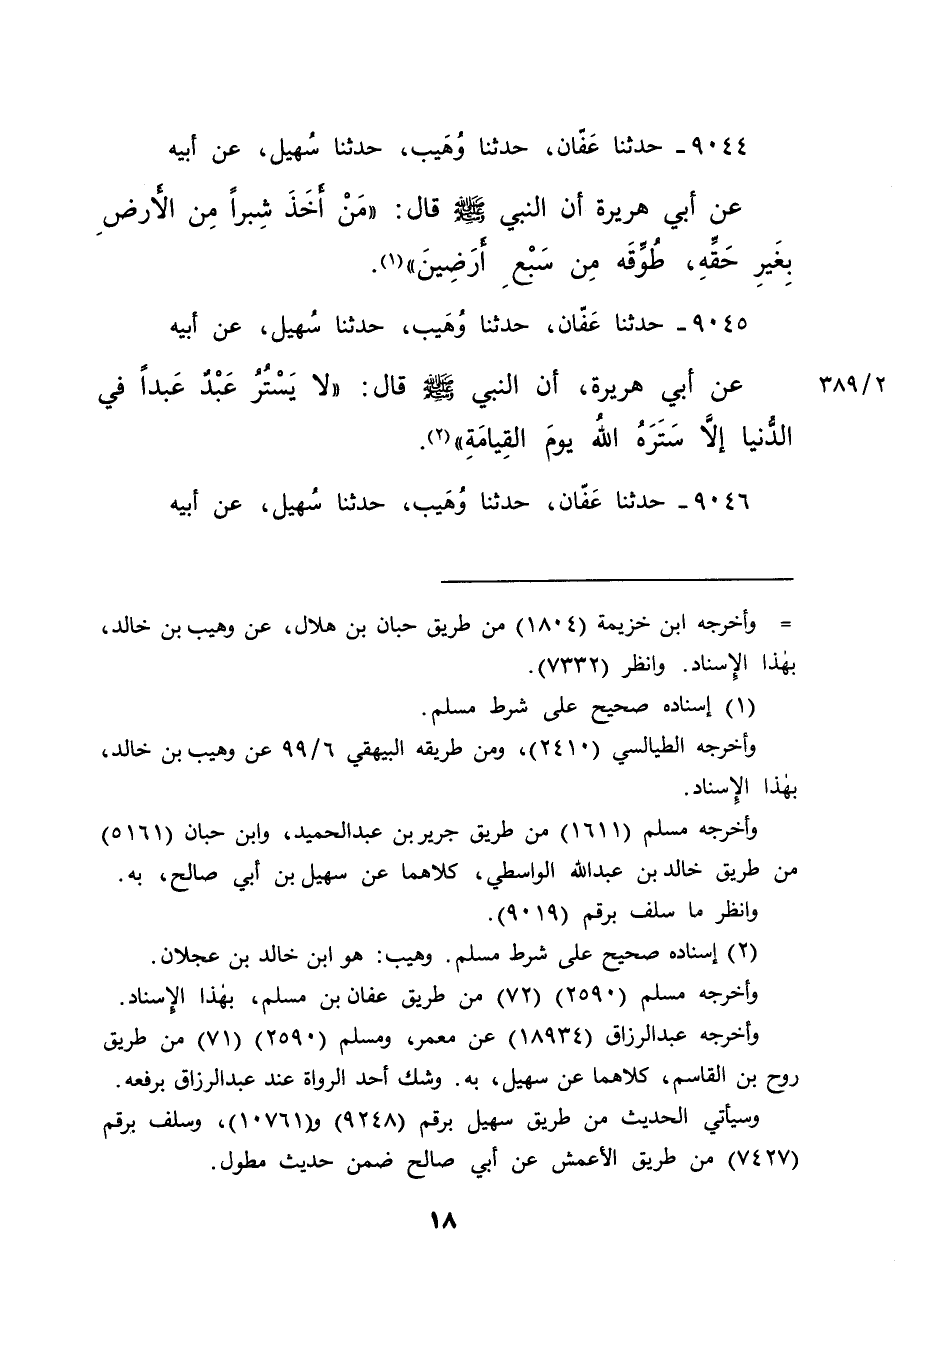 ٩٠٤٤ـ حدثنا عَفّان، حدثنا وُهَيب، حدثنا سُهيل، عن أبيه
عن أبي هريرة أن النبي ﷺ قال: «مَنْ أَخَذَ شِبراً مِن الأَرضِ
بِغَيرِ حَقِّهِ، طُوِّقَه مِن سَبْعِ أَرَضِينَ»(١).
٩٠٤٥ـ حدثنا عَفّان، حدثنا وُهَيب، حدثنا سُهيل، عن أبيه
عن أبي هريرة، أن النبي ﷺ قال: «لا يَسْتُرُ عَبْدٌ عَبداً في
٣٨٩/٢
الدُّنيا إلَّا سَتَرَهُ اللهُ يومَ القِيامَةِ»(٢).
٩٠٤٦ـ حدثنا عَفّان، حدثنا وُهَيب، حدثنا سُهيل، عن أبيه
= وأخرجه ابن خزيمة (١٨٠٤) من طريق حبان بن هلال، عن وهيب بن خالد،
بهٰذا الإِسناد. وانظر (٧٣٣٢).
(١) إسناده صحيح على شرط مسلم.
وأخرجه الطيالسي (٢٤١٠)، ومن طريقه البيهقي ٩٩/٦ عن وهيب بن خالد،
بهٰذا الإِسناد.
وأخرجه مسلم (١٦١١) من طريق جرير بن عبدالحميد، وابن حبان (٥١٦١)
من طريق خالد بن عبدالله الواسطي، كلاهما عن سهيل بن أبي صالح، به.
وانظر ما سلف برقم (٩٠١٩).
(٢) إسناده صحيح على شرط مسلم. وهيب: هو ابن خالد بن عجلان.
وأخرجه مسلم (٢٥٩٠) (٧٢) من طريق عفان بن مسلم، بهٰذا الإِسناد.
وأخرجه عبدالرزاق (١٨٩٣٤) عن معمر، ومسلم (٢٥٩٠) (٧١) من طريق
روح بن القاسم، كلاهما عن سهيل، به. وشك أحد الرواة عند عبدالرزاق برفعه.
وسيأتي الحديث من طريق سهيل برقم (٩٢٤٨) و(١٠٧٦١)، وسلف برقم
(٧٤٢٧) من طريق الأعمش عن أبي صالح ضمن حديث مطول.
١٨